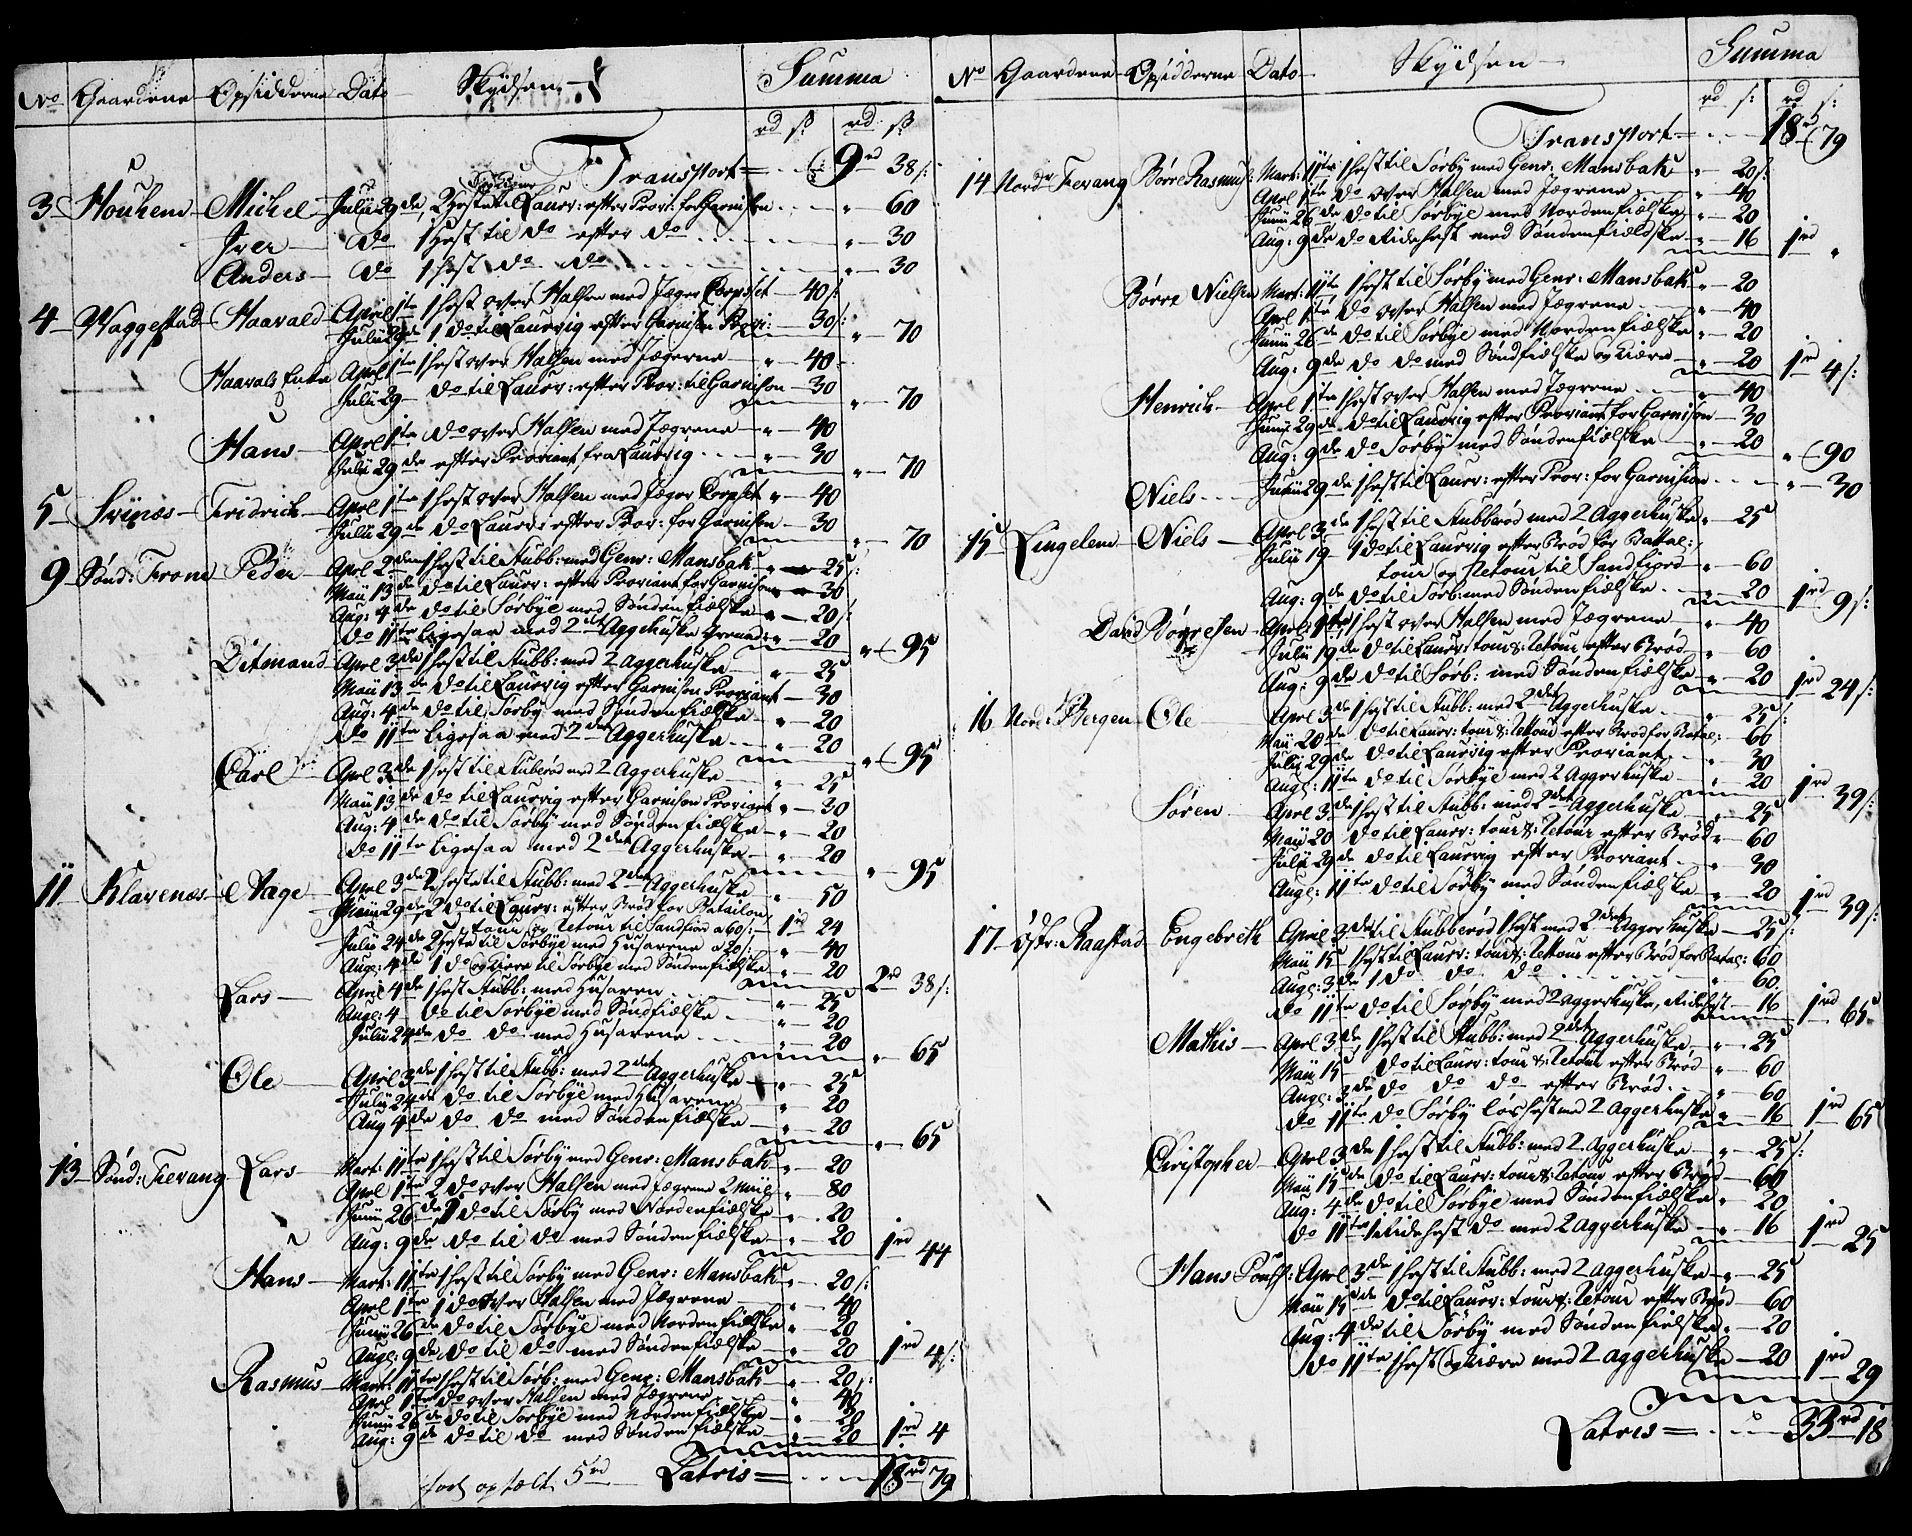 No Gaardene Opsidderne Dato Skydsen Summa
rd s: rd s:
Transport = 9rd 38 s:
3 Houkem Michel Julii 29de 2 Heste til Laurv: efter Prov: for Garnison 60
Iver do 1 Hest til do efter do 30
Anders do 1 hest do do 30
4 Waggestad Haavald April 1te 1 hest over Halsen med Jæger Corpset 40 s:
Julii 29de 1 do til Laurvig efter Garnison Provi: 30 s: 70
Haavals Enke Aprel 1te 1 hest over Halsen med Jægerne 40
Julii 29 do til Laurv: efter Prov: til Garnison 30 70
Hans Aprel 1te do over Halsen med Jægrene 40
Julii 29de efter Proviant fra Laurvig 30 70
5 Svinæs Fridrich Aprel 1te 1 hest over Halsen med Jæger Corpset 40
Julii 29de do Laurv: efter Prov: for Garnison 30 70
9 Sønd: Trom Peder Aprel 2den 1 hest til Stubb: med Genr: Mansbak 25 s:
Maii 13de do til Laurv: efter Proviant for Garnison 30
Aug: 4de do til Sørbye med Søndenfielske 20 s:
do 11te ligesaa med 2det Aggerhuske Grenad: 20 95
Ditmand Aprel 3de 1 hest til Stubb: med 2 Aggerhuske 25
Maii 13de do til Laurvig efter Garnison Proviant 30
Aug: 4de do til Sørby med Søndenfielske 20
do 11te ligesaa med 2det Aggerhuske 20 95
Carl Aprel 3de 1 hest til Stuberød med 2 Aggerhuske 25
Maii 13de do til Laurvig efter Garnison Proviant 30
Aug: 4de do til Sørby med Søndenfielske 20
do 11te ligesaa med 2det Aggerhuske 20 95
11 Klavenæs Aage Aprel 3de 2 heste til Stubb: med 2det Aggerhuske 50
29de 2 do til Laurv: efter Brød for Batailon
tour og Retour til Sandfiord a 60 s: 1rd 24
Julii 24de 2 Heste til Sørbye med Husarene a 20 s: 40
Aug: 4de 1 do og Kiøre til Sørbye med Søndenfielske 20 2rd 38 s:
Lars April 4de 1 hest Stubb: med Husaren 25
Aug: 4 do til Sørbye med Søndfielske 20
Julii 24de do do med Husarene 20 65
Ole April 3de 1 hest til Stubb: med 2det Aggerhuske 25
Julii 24de do til Sørbye med Husarene 20
Aug 4de do do med Søndenfielske 20 65
13 Sønd: Fevang Lars Mart: 11te 1 hest til Sørby med Genr: Mansbak 20
Aprel 1te 2 do over Halsen med Jægrene 2 Miile 80
Junii 26de 1 do til Sørby med Nordenfielske 20
Aug: 9de do til do med Søndenfielske 20 1rd 44
Hans Mart: 11te 1 hest til Sørby med Genr: Mansbak 20 s:
Aprel 1te 1 do over Halsen med Jægrene 40
Junii 26de do til Sørbye med Nordenfielske 20
Aug: 9de do til do med Søndenfielske 20 1rd 4 s:
Rasmus Mart: 11te 1 hest til Sørb: med Genr: Mansbak 20 s:
Aprel 1te do over Halsen med Jægrene 40
Junii 26de do til Sørbye med Nordenfielske 20
Aug: 9de do til do med Søndenfielske 20 1rd 4
5rd Latris = 18rd 79
No Gaardene Opsidderne Dato Skydsen Summa
rd s: rd s:
Transport = 18rd 79
14 Nordr Fevang Børre Rasmus: Mart: 11te 1 hest til Sørby med Genr: Mansbak 20 s:
Aprel 1te do over Halsen med Jægrene 40
Junii 26de do til Sørbye med Nordenfielske 20
Aug: 9de do Ridehest med Søndenfieldske 16 1rd
Børre Nielsen Mart: 11te 1 hest til Sørby med Genr: Mansbak 20
Aprel 1te do over Halsen med Jægrene 40
Junii 26de do til Sørbye med Nordenfielske 20
Aug: 9de do do med Søndfielske og Kiøre 20 1rd 4 s:
Henrich Aprel 1te 1 hest over Halsen med Jægrene 40
Junii 29de do til Laurvig efter Proviant for Garnison 30
Aug: 9de do Sørby med Søndenfielske 20 90
Niels Junii 29de 1 hest til Laurv: efter Prov: for Garnison 30
15 Lingelem Niels Aprel 3de 1 hest til Stubberød med 2 Aggerhuske 25
Julii 19 1 do til Laurvig efter Brød for Battal:
tour og Retour til Sandfiord 60
Aug: 9de do til Sørb: med Søndenfielske 20 1rd 9 s:
David Børresen Aprel: 1te 1 hest over Halsen med Jægrene 40
Julii 19de do til Laurv: tour & Retour efter Brød 60
Aug: 9de do til Sørb: med Søndenfielske 20 1rd 24 s:
16 Nord: Bergen Ole Aprel 3de 1 hest til Stubb: med 2det Aggerhuske 25 s:
Maii 20de do til Laurv: tour & Retour efter Brød for Batal: 60
Julii 29de do til Laurvig efter Proviant 30
Aug: 11te do til Sørbye med 2 Aggerhuske 20 1rd 39 s:
Søren Aprel 3de 1 hest til Stubb: med 2det Aggerhuske 25
Maii 20 do til Laurv: tour & Retour efter Brød 60
Julii 29de do til Laurvig efter Proviant 30
Aug: 11te do til Sørby med Søndenfielske 20 1rd 39 s:
17 Østr: Raastad Engebreth April 3de til Stubberød 1 hest med 2det Aggerhuske 25 s:
Maii 15 1 hest til Laurv: tour & Retour efter Brød for Batal: 60
Aug: 3de 1 do do do 60
do 11te do til Sørby med 2 Aggerhuske, Ridehest 16 1rd 65
Mathis Aprel 3de 1 hest til Stubb: med 2det Aggerhuske 25
Maii 15 do til Laurv: tour & Retour efter Brød 60
Aug: 3de do do do efter Brød 60
do 11te do Sørby løs hest med 2 Aggerhuske 16 1rd 65
Christopher Aprel 3de 1 hest til Stubb: med 2 Aggerhuske 25 s:
Maii 15de do til Laurv: tour & Retour efter Brød 60
Aug: 4de do til Sørbye med Søndenfielske 20
do 11te 1 Ridehest do med 2 Aggerhuske 16 1rd 25
Hans Aprel 3de 1 hest til Stubb: med 2 Aggerhuske 25
Maii 15de do til Laurv: tour & Retour efter Brød 60
Aug: 4de til Sørby med Søndenfielske 20
do 11te 1 hest og Kiøre med 2 Aggerhuske 20 1rd 29
Latris = 33rd 18